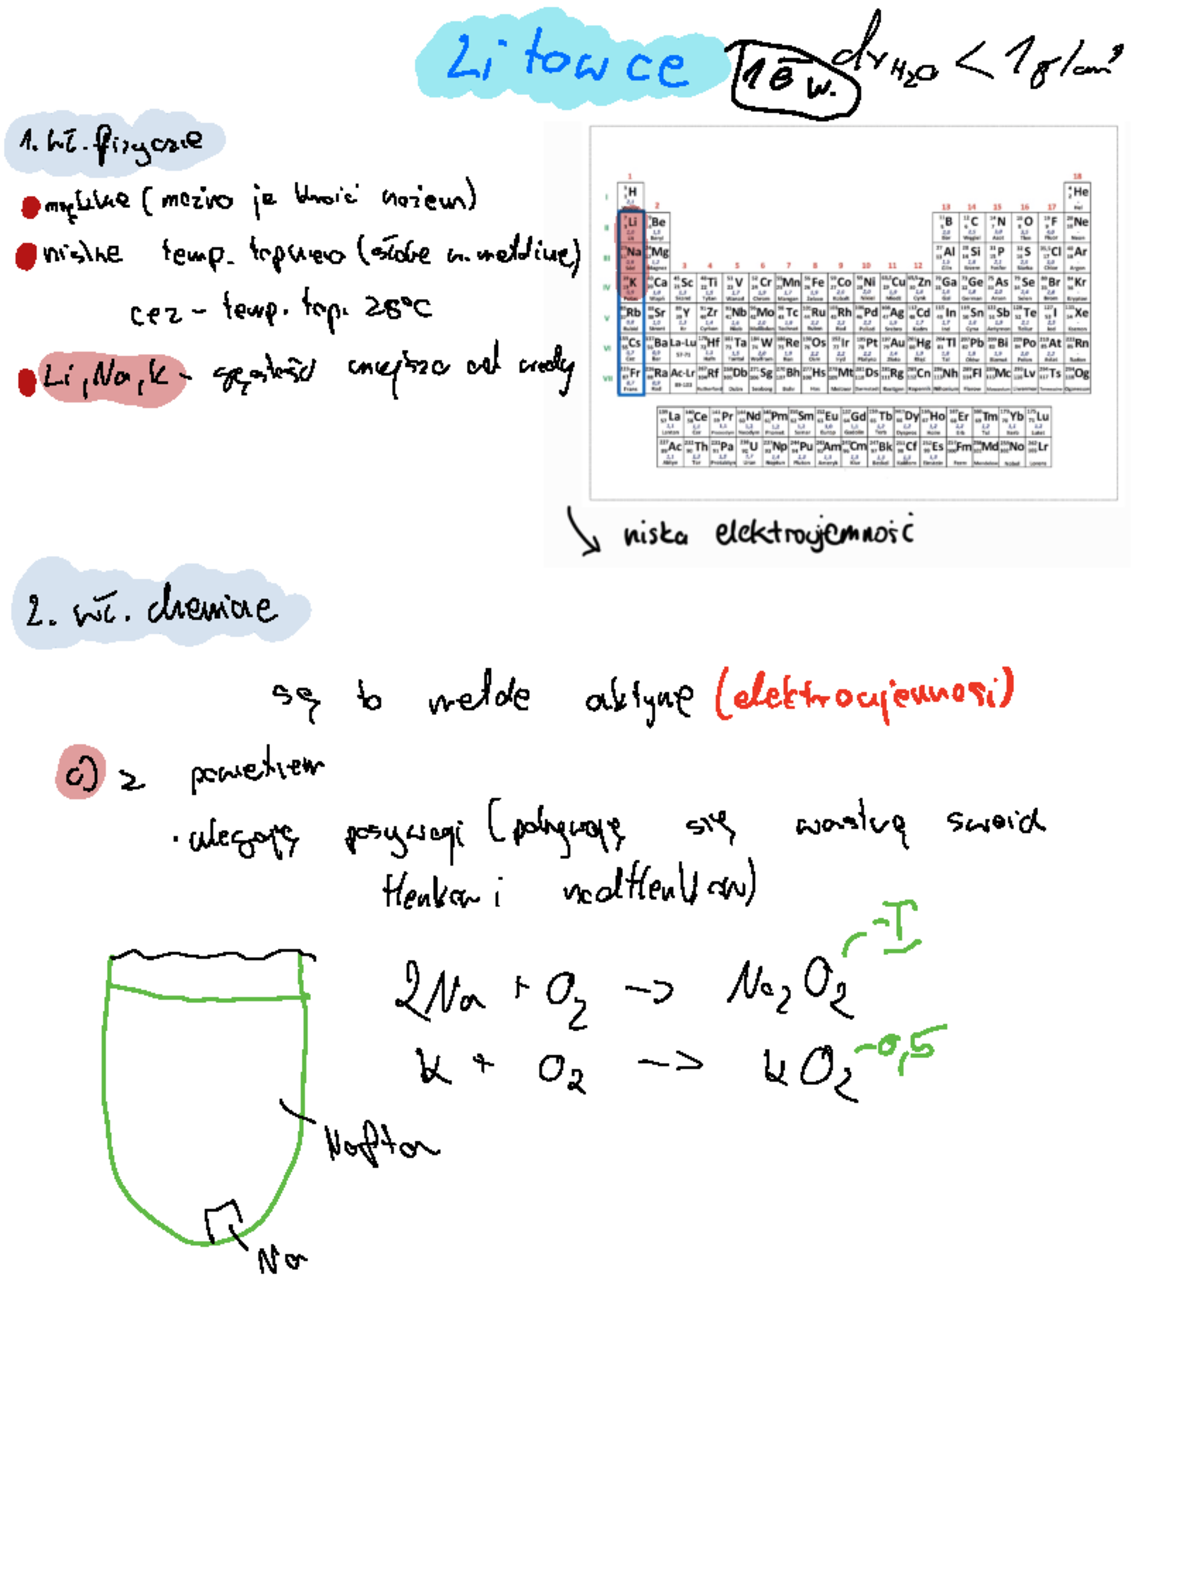 Litowce
1 e⁻ w.
dr H2O < 1 g/cm³
1. wł. fizyczne
miękkie (można je kroić nożem)
niskie temp. topnien (słabe w. metaliczne)
cez - temp. top. 28°C
Li, Na, K - gęstość mniejsza od wody
1 18
H He
2 13 14 15 16 17
Li Be B C N O F Ne
Na Mg 3 4 5 6 7 8 9 10 11 12 Al Si P S Cl Ar
K Ca Sc Ti V Cr Mn Fe Co Ni Cu Zn Ga Ge As Se Br Kr
Rb Sr Y Zr Nb Mo Tc Ru Rh Pd Ag Cd In Sn Sb Te I Xe
Cs Ba La-Lu Hf Ta W Re Os Ir Pt Au Hg Tl Pb Bi Po At Rn
Fr Ra Ac-Lr Rf Db Sg Bh Hs Mt Ds Rg Cn Nh Fl Mc Lv Ts Og
La Ce Pr Nd Pm Sm Eu Gd Tb Dy Ho Er Tm Yb Lu
Ac Th Pa U Np Pu Am Cm Bk Cf Es Fm Md No Lr
niska elektroujemność
2. wł. chemiczne
są to metale aktywne (elektroujemności)
a) z powietrzem
· ulegają pasywacji (pokrywają się warstwą swoich
tlenków i nadtlenków)
2Na + O2 -> Na2O2 -I
K + O2 -> KO2 -0,5
Nafta
Na